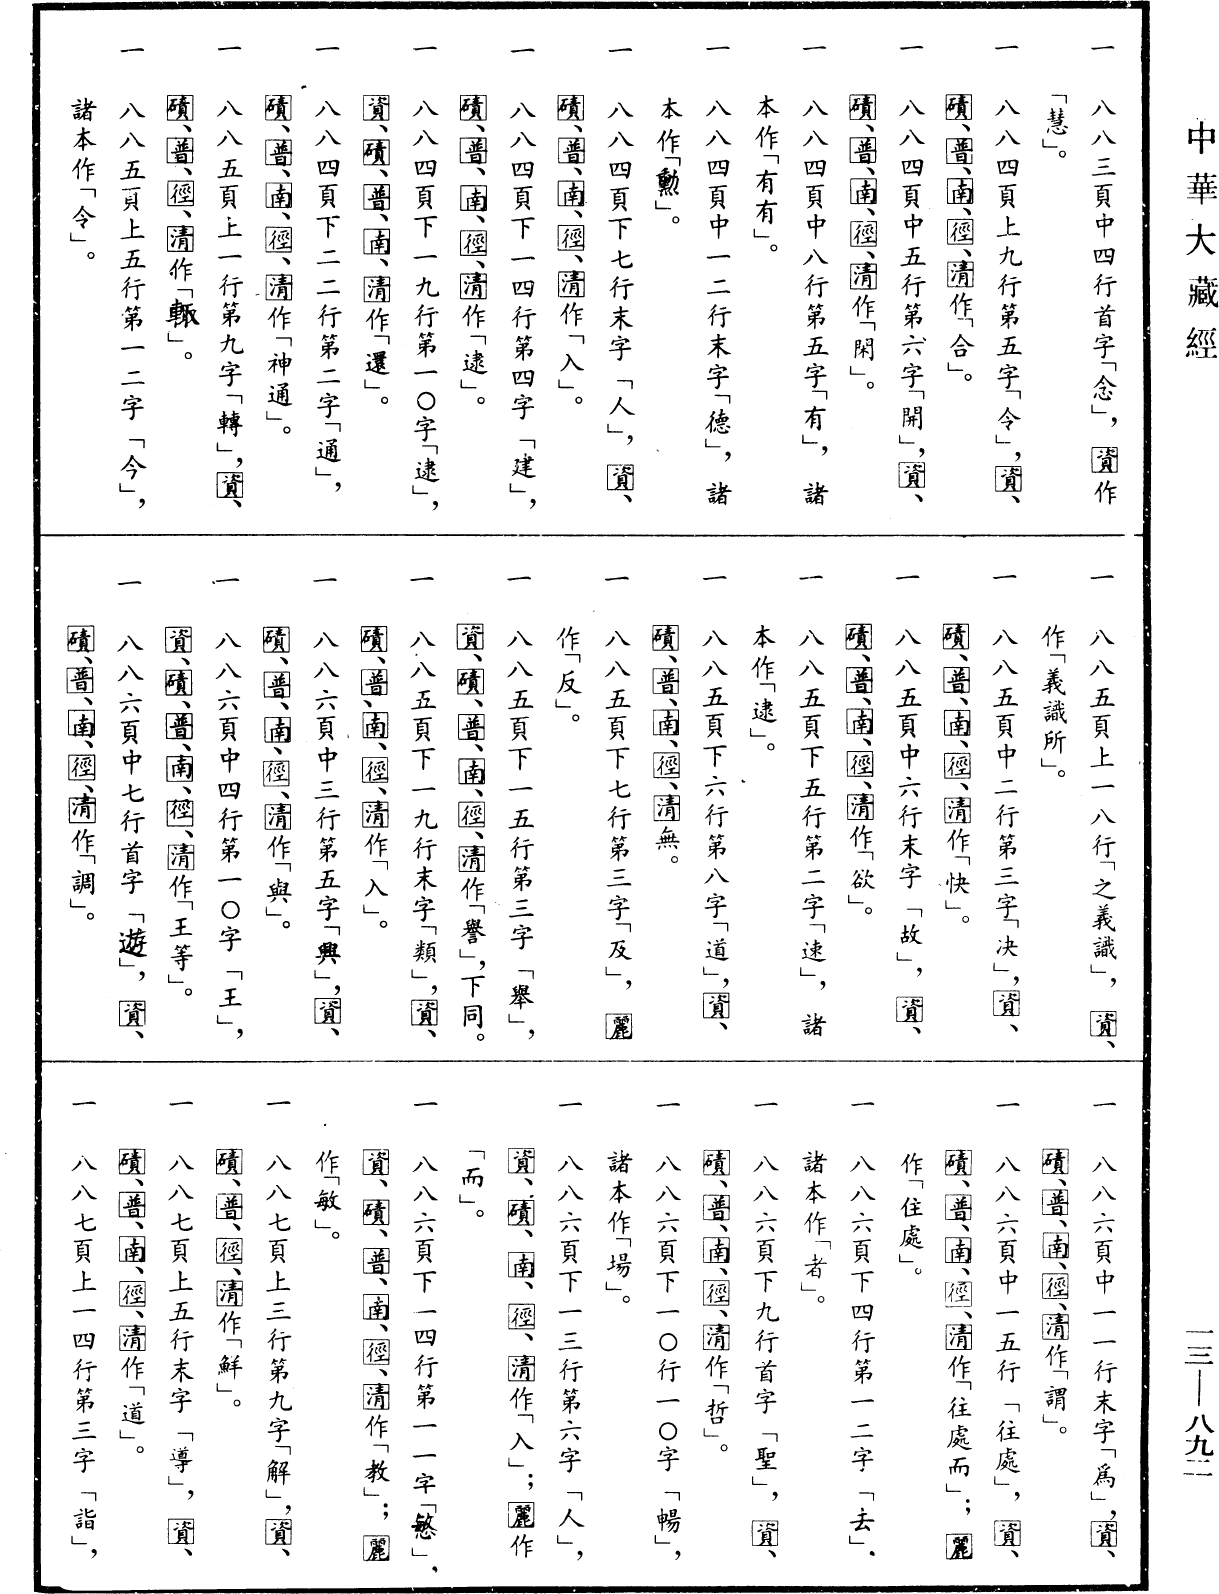 中華大藏經
一 八八三頁中四行首字「念」，資作
「慧」。
一 八八四頁上九行第五字「令」，資、
磧、普、南、徑、清作「合」。
一 八八四頁中五行第六字「開」，資、
磧、普、南、徑、清作「閑」。
一 八八四頁中八行第五字「有」，諸
本作「有有」。
一 八八四頁中一二行末字「德」，諸
本作「勲」。
一 八八四頁下七行末字「人」，資、
磧、普、南、徑、清作「入」。
一 八八四頁下一四行第四字「建」，
磧、普、南、徑、清作「逮」。
一 八八四頁下一九行第一〇字「逮」，
資、磧、普、南、清作「還」。
一 八八四頁下二二行第二字「通」，
磧、普、南、徑、清作「神通」。
一 八八五頁上一行第九字「轉」，資、
磧、普、徑、清作「輒」。
一 八八五頁上五行第一二字「今」，
諸本作「令」。
一 八八五頁上一八行「之義識」，資、
作「義識所」。
一 八八五頁中二行第三字「决」，資、
磧、普、南、徑、清作「快」。
一 八八五頁中六行末字「故」，資、
磧、普、南、徑、清作「欲」。
一 八八五頁下五行第二字「速」，諸
本作「逮」。
一 八八五頁下六行第八字「道」，資、
磧、普、南、徑、清無。
一 八八五頁下七行第三字「及」，麗
作「反」。
一 八八五頁下一五行第三字「舉」，
資、磧、普、南、徑、清作「譽」，下同。
一 八八五頁下一九行末字「類」，資、
磧、普、南、徑、清作「入」。
一 八八六頁中三行第五字「興」，資、
磧、普、南、徑、清作「與」。
一 八八六頁中四行第一〇字「王」，
資、磧、普、南、徑、清作「王等」。
一 八八六頁中七行首字「遊」，資、
磧、普、南、徑、清作「調」。
一 八八六頁中一一行末字「爲」，資、
磧、普、南、徑、清作「謂」。
一 八八六頁中一五行「往處」，資、
磧、普、南、徑、清作「往處而」；麗
作「住處」。
一 八八六頁下四行第一二字「去」．
諸本作「者」。
一 八八六頁下九行首字「聖」，資、
磧、普、南、徑、清作「哲」。
一 八八六頁下一〇行一〇字「暢」，
諸本作「場」。
一 八八六頁下一三行第六字「人」，
資、磧、南、徑、清作「入」；麗作
「而」。
一 八八六頁下一四行第一一字「慜」，
資、磧、普、南、徑、清作「教」；麗
作「敏」。
一 八八七頁上三行第九字「解」，資、
磧、普、徑、清作「鮮」。
一 八八七頁上五行末字「導」，資、
磧、普、南、徑、清作「道」。
一 八八七頁上一四行第三字「詣」，
一三—八九二